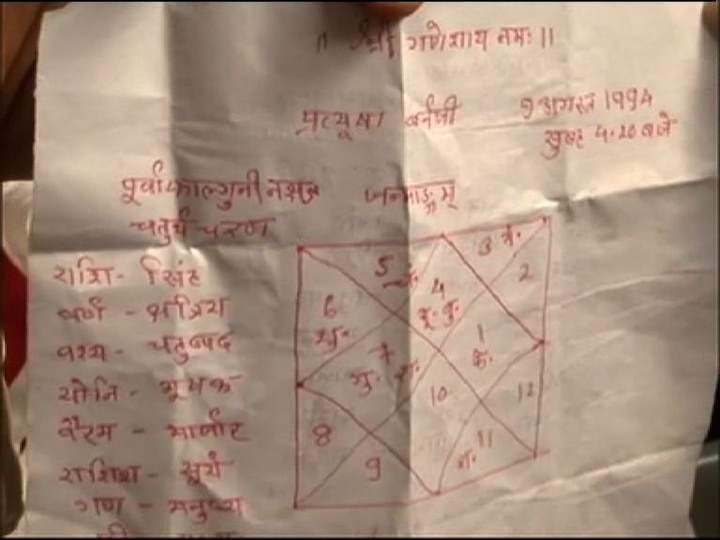 ॥ श्री गणेशाय नमः ॥
प्रत्यूषा बर्नजी 9 अगस्त 1994
सुबह 4.20 बजे
पूर्वाफाल्गुनी नक्षत्र जन्माङ्गम्
चतुर्थ चरण
राशि - सिंह
वर्ण - क्षत्रिय
वश्य - चतुष्पद
योनि - मूषक
वैरम - मार्जार
राशिश - सूर्य
गण - मनुष्य
5 चं.
3 मं.
2
4
सू. बु.
6
शु.
7
गु. रा.
1
के.
10
12
8
9
11
श.